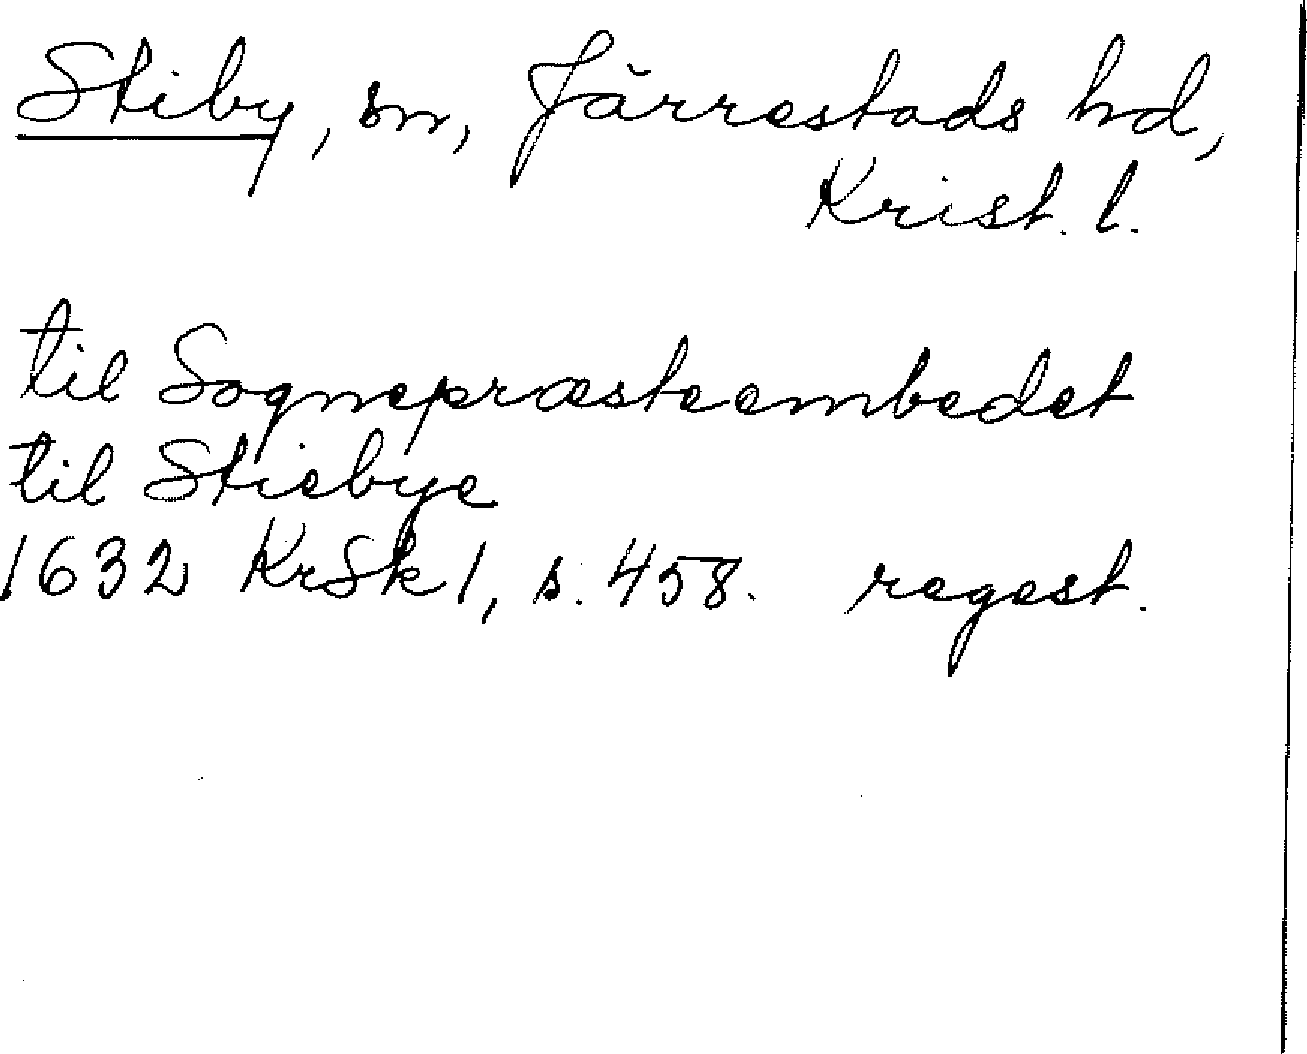 Stiby, sn, Järrestads hd,
Krist. l.
til Sognepræsteembedet
til Stiebye
1632 KrSk 1, s. 458. regest.